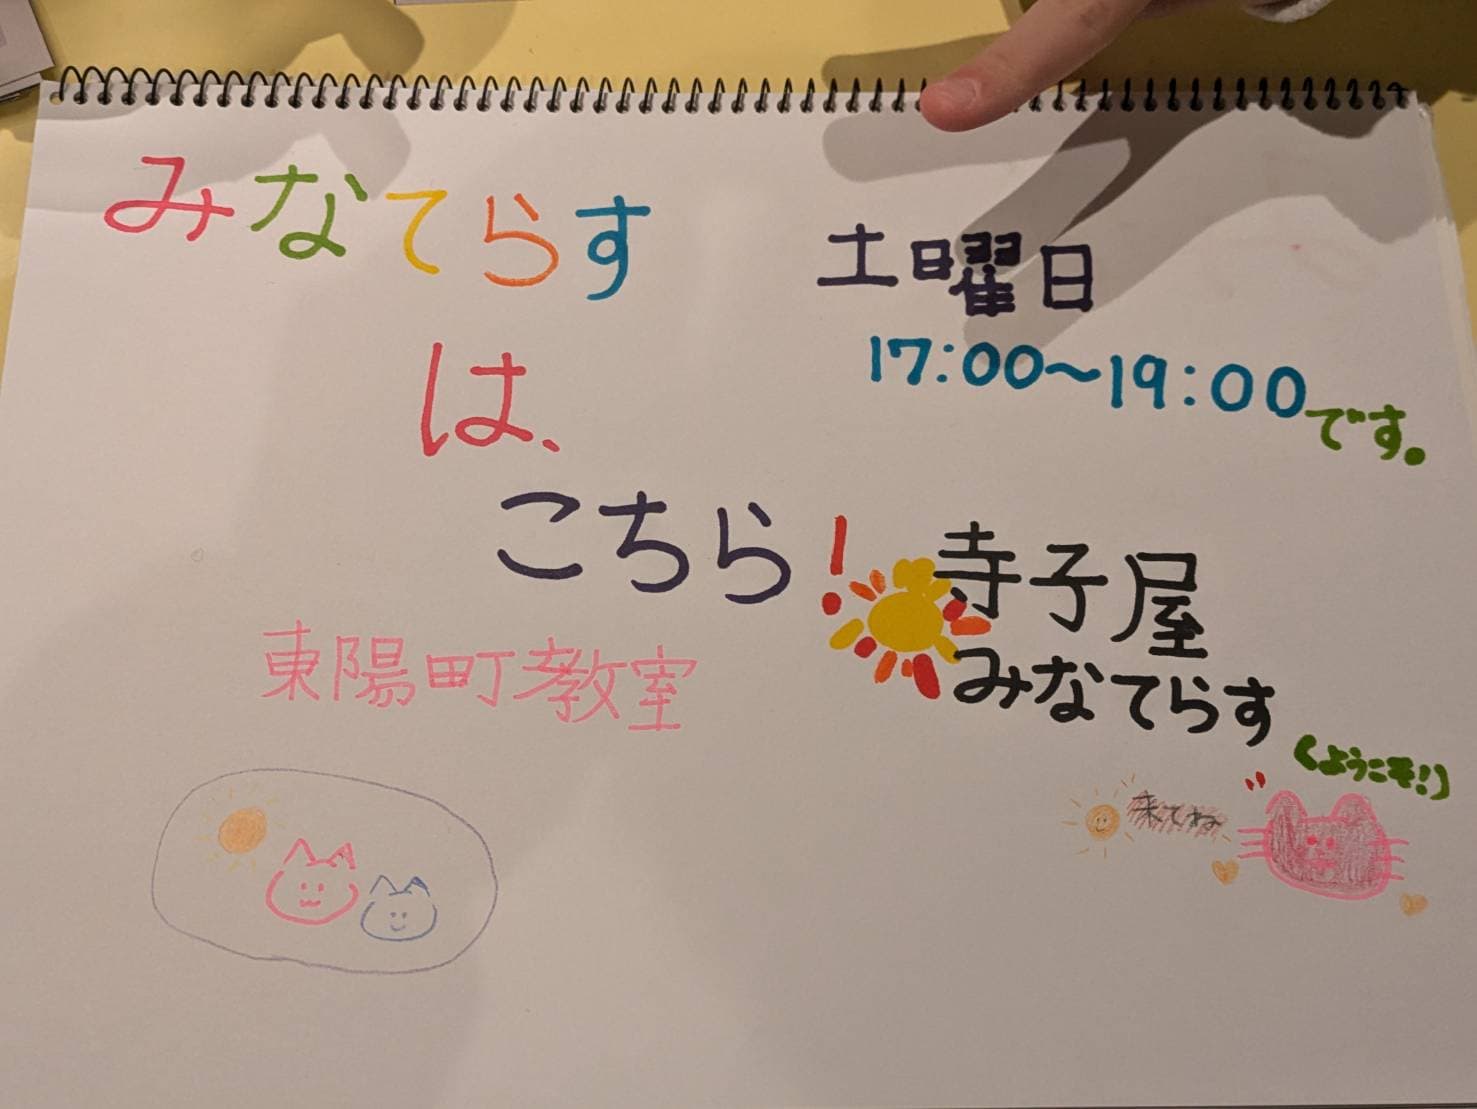 みなてらす
は、
こちら!
東陽町教室
土曜日
17:00〜19:00です。
寺子屋
みなてらす
(ようこそ!)
来てね